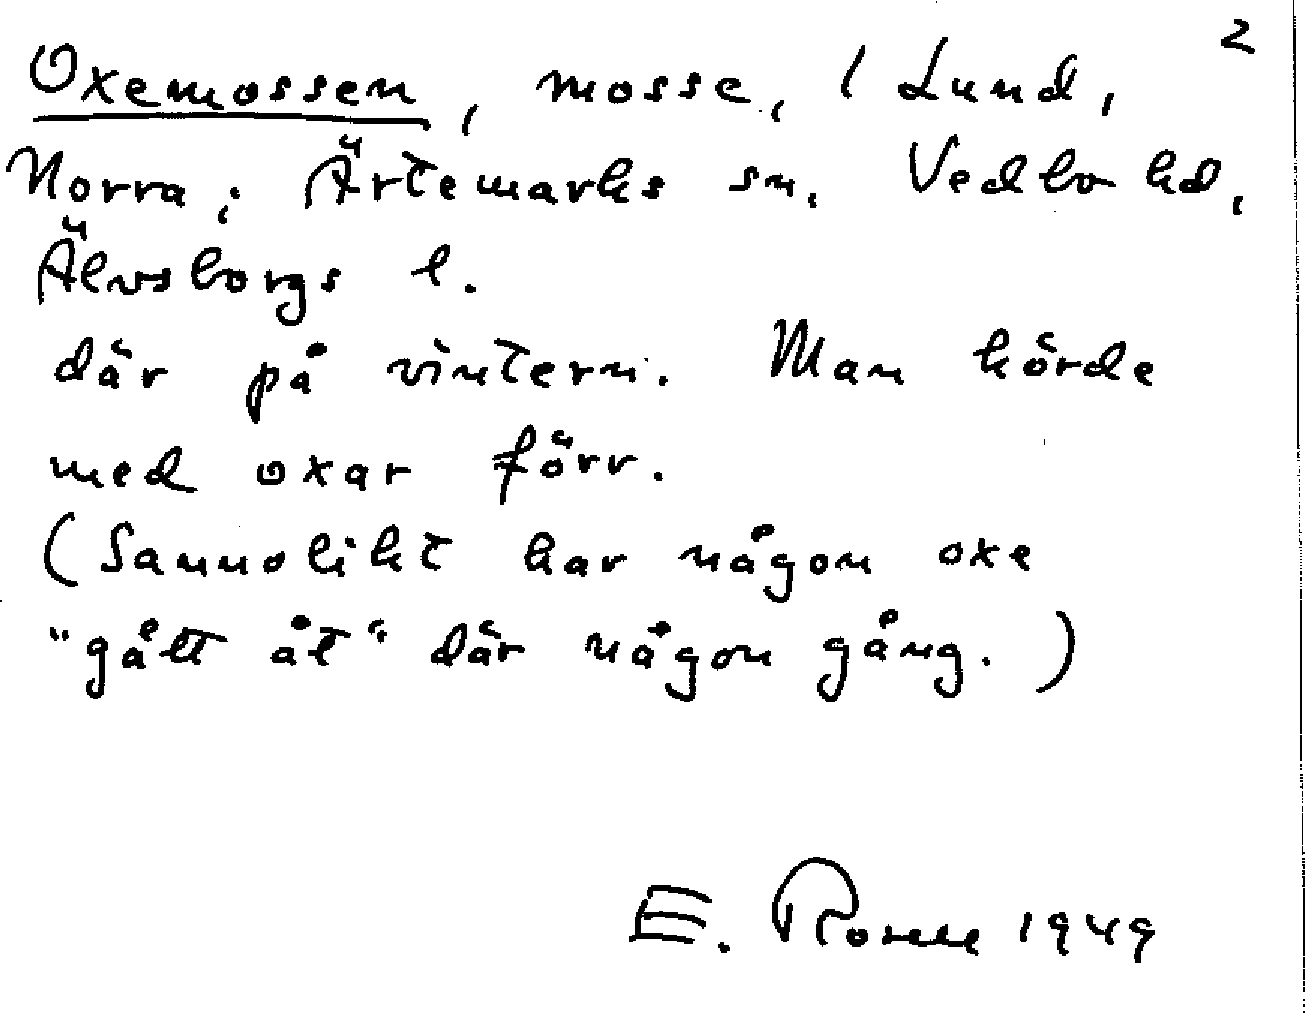 2
Oxemossen, mosse, i Lund,
Norra; Ärtemarks sn. Vedbo hd,
Älvsborgs l.
där på vintern. Man körde
med oxar förr.
(Sannolikt har någon oxe
"gått åt" där någon gång.)
E. 1949